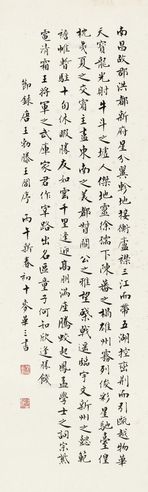 南昌故郡洪都新府星分翼軫地接衡廬襟三江而帶五湖控蠻荊而引甌越物華
天寶龍光射牛斗之墟人傑地靈徐孺下陳蕃之榻雄州霧列俊彩星馳臺隍
枕夷夏之交賓主盡東南之美都督閻公之雅望棨戟遙臨宇文新州之懿範
襜帷暫駐十旬休暇勝友如雲千里逢迎高朋滿座騰蛟起鳳孟學士之詞宗紫
電清霜王將軍之武庫家君作宰路出名區童子何知逢勝餞
節錄唐王勃滕王閣序 丙午新春初十 書